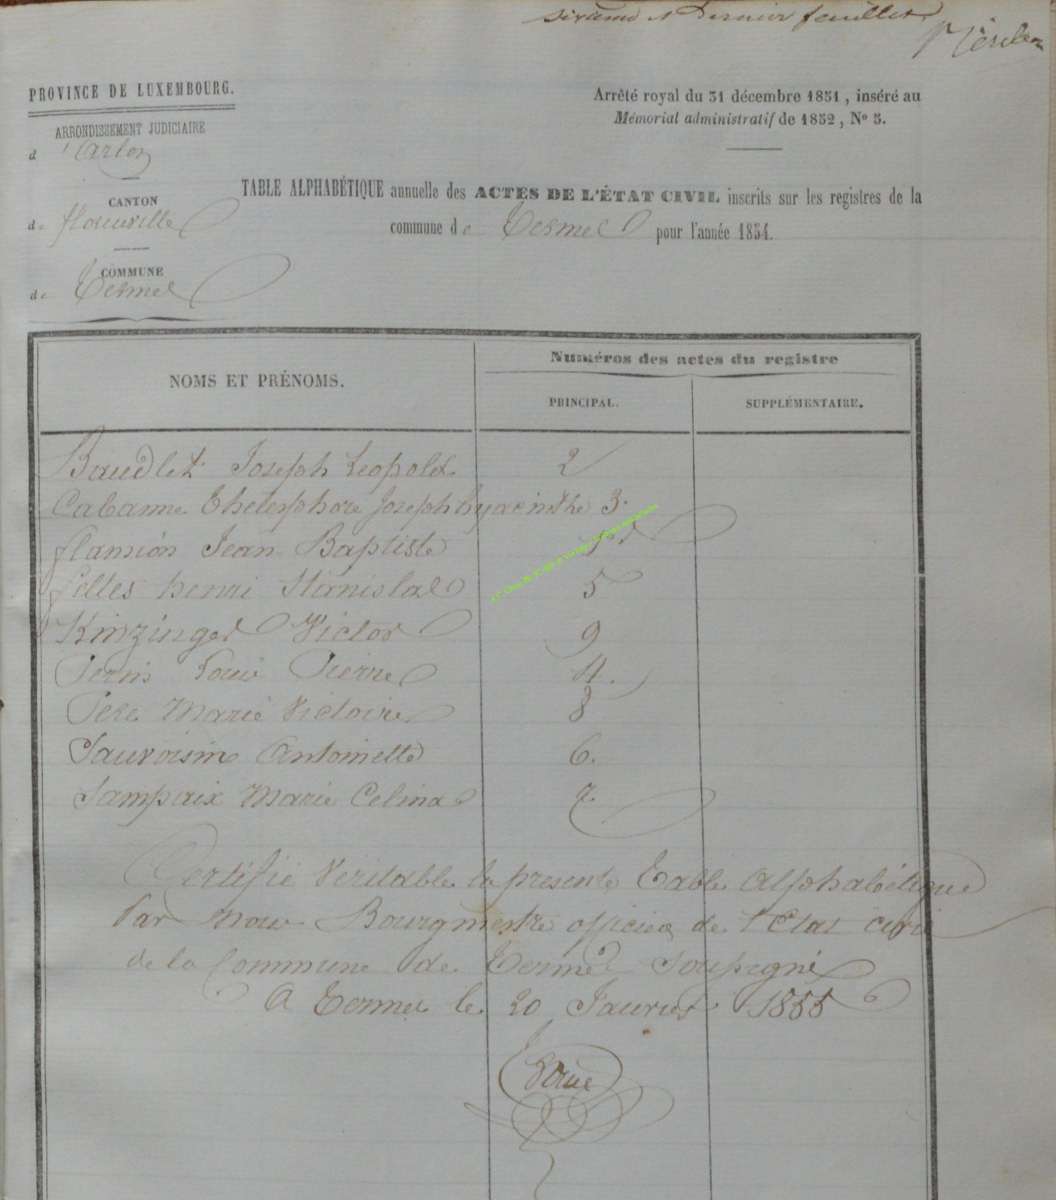 sixième et Dernier feuillet
PROVINCE DE LUXEMBOURG.
Arrêté royal du 31 décembre 1831, inséré au
Mémorial administratif de 1832, Nº 5.
ARRONDISSEMENT JUDICIAIRE
d'Arlon
CANTON
de florenville
COMMUNE
de Termes
TABLE ALPHABÉTIQUE annuelle des ACTES DE L'ÉTAT CIVIL inscrits sur les registres de la
commune de Termes pour l'année 1854.
NOMS ET PRÉNOMS.
Numéros des actes du registre
PRINCIPAL.
SUPPLÉMENTAIRE.
Baudlet Joseph Leopold 2
Cabanne Thelesphore Joseph hyacinthe 3.
flamion Jean Baptiste 1
felles henri Stanislas 5
Kinzinger Victor 9
Pernis Louis Pierre 4.
Pere Marie Victoire 8
Sauvoisin Antoinette 6.
Sampaix Marie Celina 7.
Certifié Veritable la presente Table Alphabétique
Par Nous Bourgmestre officier de l'Etat civil
de la Commune de Termes Soupsigné
A Termes le 20 Janvier 1855